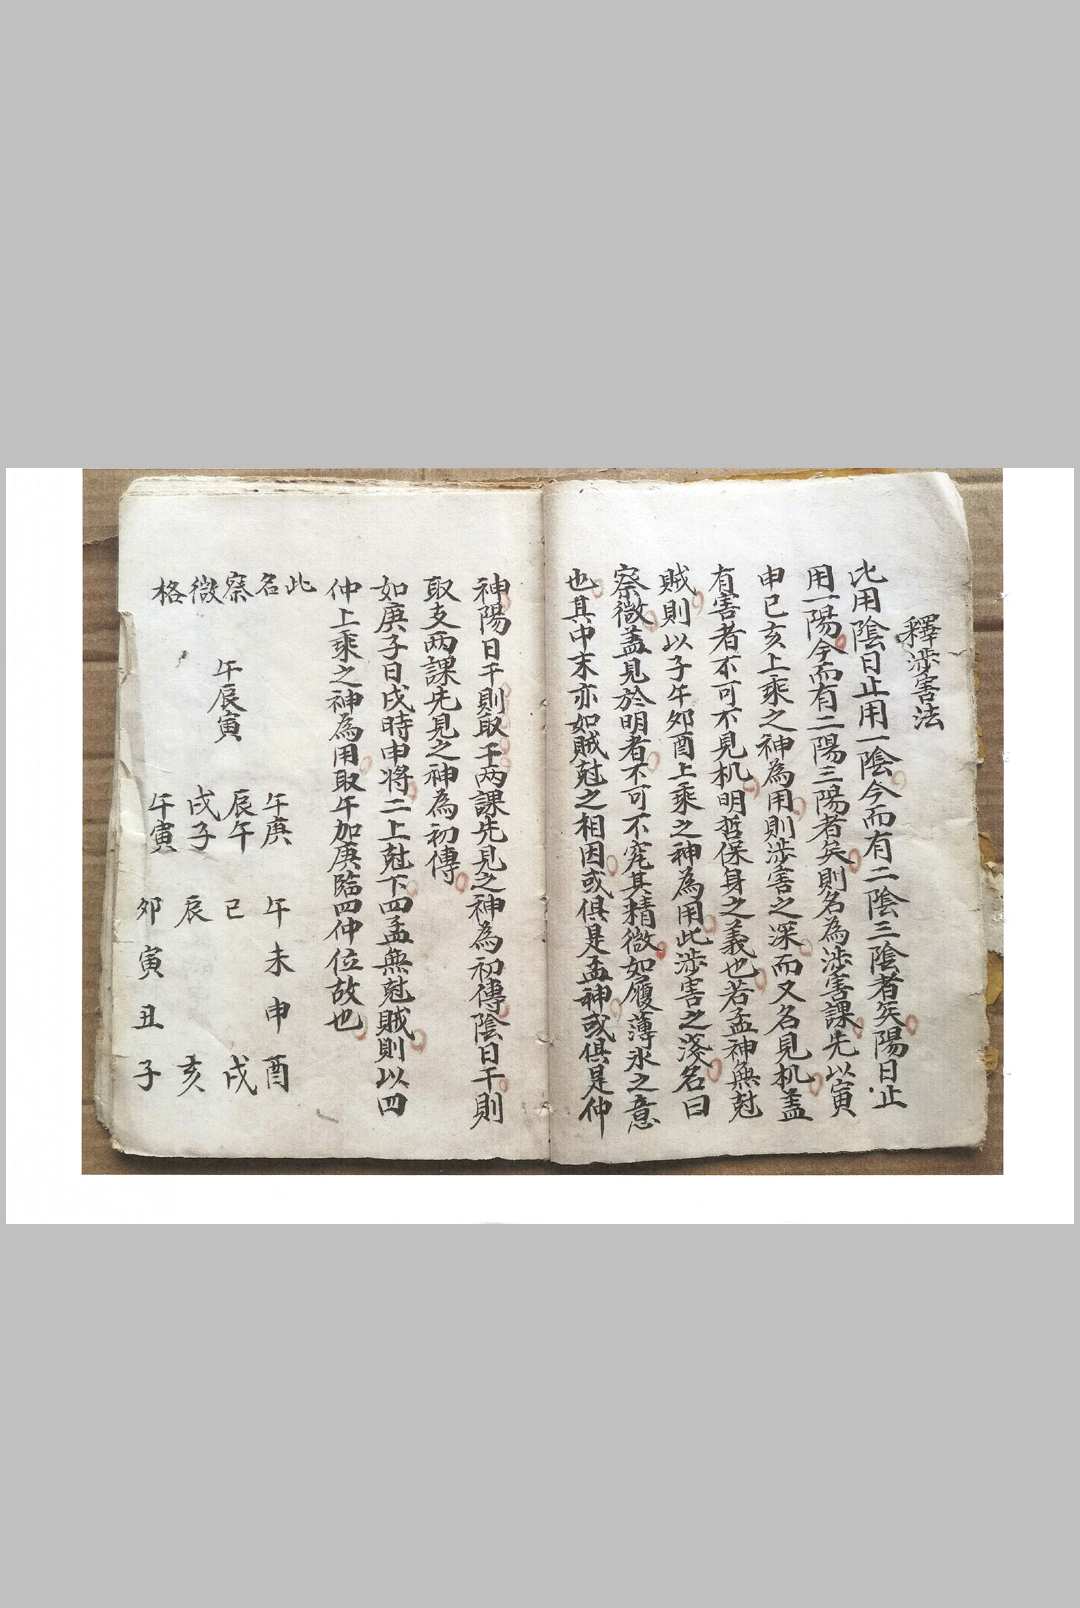 釋涉害法
比用陰日止用一陰今而有二陰三陰者矣陽日止
用一陽今而有二陽三陽者矣則名為涉害課先以寅
申巳亥上乘之神為用則涉害之深而又名見机盖
有害者不可不見机明哲保身之義也若孟神無尅
賊則以子午夘酉上乘之神為用此涉害之淺名曰
察微盖見於明者不可不究其精微如履薄氷之意
也其中末亦如賊尅之相因或俱是孟神或俱是仲
神陽日干則取干两課先見之神為初傳陰日干則
取支两課先見之神為初傳
如庚子日戌時申将二上尅下四孟無尅賊則以四
仲上乘之神為用取午加庚臨四仲位故也
此名察微格
午辰寅
午庚
辰午
戌子
午寅
午未申酉
己戌
辰亥
夘寅丑子